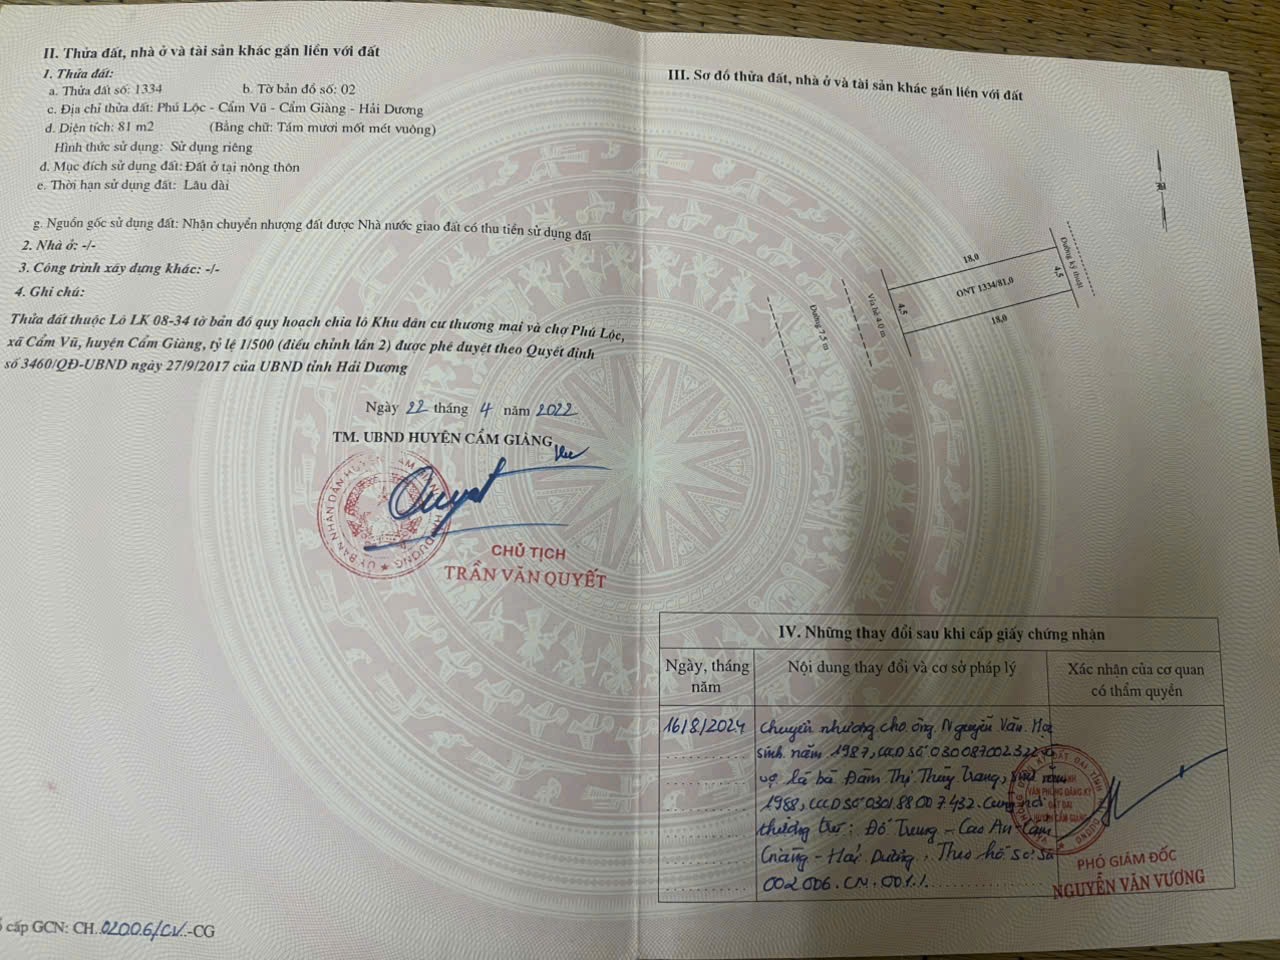 II. Thửa đất, nhà ở và tài sản khác gắn liền với đất
1. Thửa đất:
a. Thửa đất số: 1334 b. Tờ bản đồ số: 02
c. Địa chỉ thửa đất: Phú Lộc - Cẩm Vũ - Cẩm Giàng - Hải Dương
d. Diện tích: 81 m2 (Bằng chữ: Tám mươi mốt mét vuông)
Hình thức sử dụng: Sử dụng riêng
đ. Mục đích sử dụng đất: Đất ở tại nông thôn
e. Thời hạn sử dụng đất: Lâu dài
g. Nguồn gốc sử dụng đất: Nhận chuyển nhượng đất được Nhà nước giao đất có thu tiền sử dụng đất
2. Nhà ở: -/-
3. Công trình xây dựng khác: -/-
4. Ghi chú:
Thửa đất thuộc Lô LK 08-34 tờ bản đồ quy hoạch chia lô Khu dân cư thương mại và chợ Phú Lộc,
xã Cẩm Vũ, huyện Cẩm Giàng, tỷ lệ 1/500 (điều chỉnh lần 2) được phê duyệt theo Quyết định
số 3460/QĐ-UBND ngày 27/9/2017 của UBND tỉnh Hải Dương
Ngày 22 tháng 4 năm 2022
TM. UBND HUYỆN CẨM GIÀNG
CHỦ TỊCH
TRẦN VĂN QUYẾT
cấp GCN: CH..02006/CV..-CG
III. Sơ đồ thửa đất, nhà ở và tài sản khác gắn liền với đất
18,0
4,5
ONT 1334/81,0
4,5
18,0
Đường kỹ thuật
Vỉa hè 4.0 m
Đường 7.5 m
IV. Những thay đổi sau khi cấp giấy chứng nhận
Ngày, tháng năm
Nội dung thay đổi và cơ sở pháp lý
Xác nhận của cơ quan có thẩm quyền
16/8/2024
Chuyển nhượng cho ông Nguyễn Văn
sinh năm 1987, CCCD số
vợ là bà Đàm Thị Thùy Trang, sinh năm
1988, CCCD số Cùng nơi
thường trú: Đỗ Trung - Cao An - Cẩm
Giàng - Hải Dương. Theo hồ sơ số
002006.CN.001./.
PHÓ GIÁM ĐỐC
NGUYỄN VĂN VƯƠNG